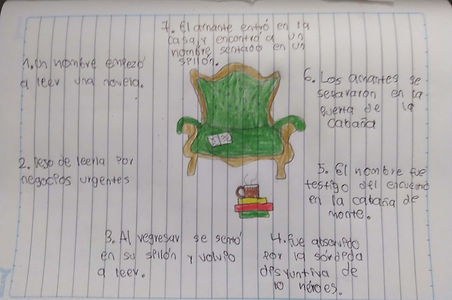 1. Un hombre empezó
a leer una novela.
2. Dejo de leerla por
negocios urgentes
3. Al regresar se sentó
en su sillón y volvio
a leer.
4. Fue absorvido
por la sórdeda
disyuntiva de
lo héroes.
5. El hombre fue
testigo del encuentro
en la cabaña de
monte.
6. Los amantes se
separaron en la
puerta de la
cabaña
7. El amante entró en la
casa y encontró a un
hombre sentado en un
sillón.